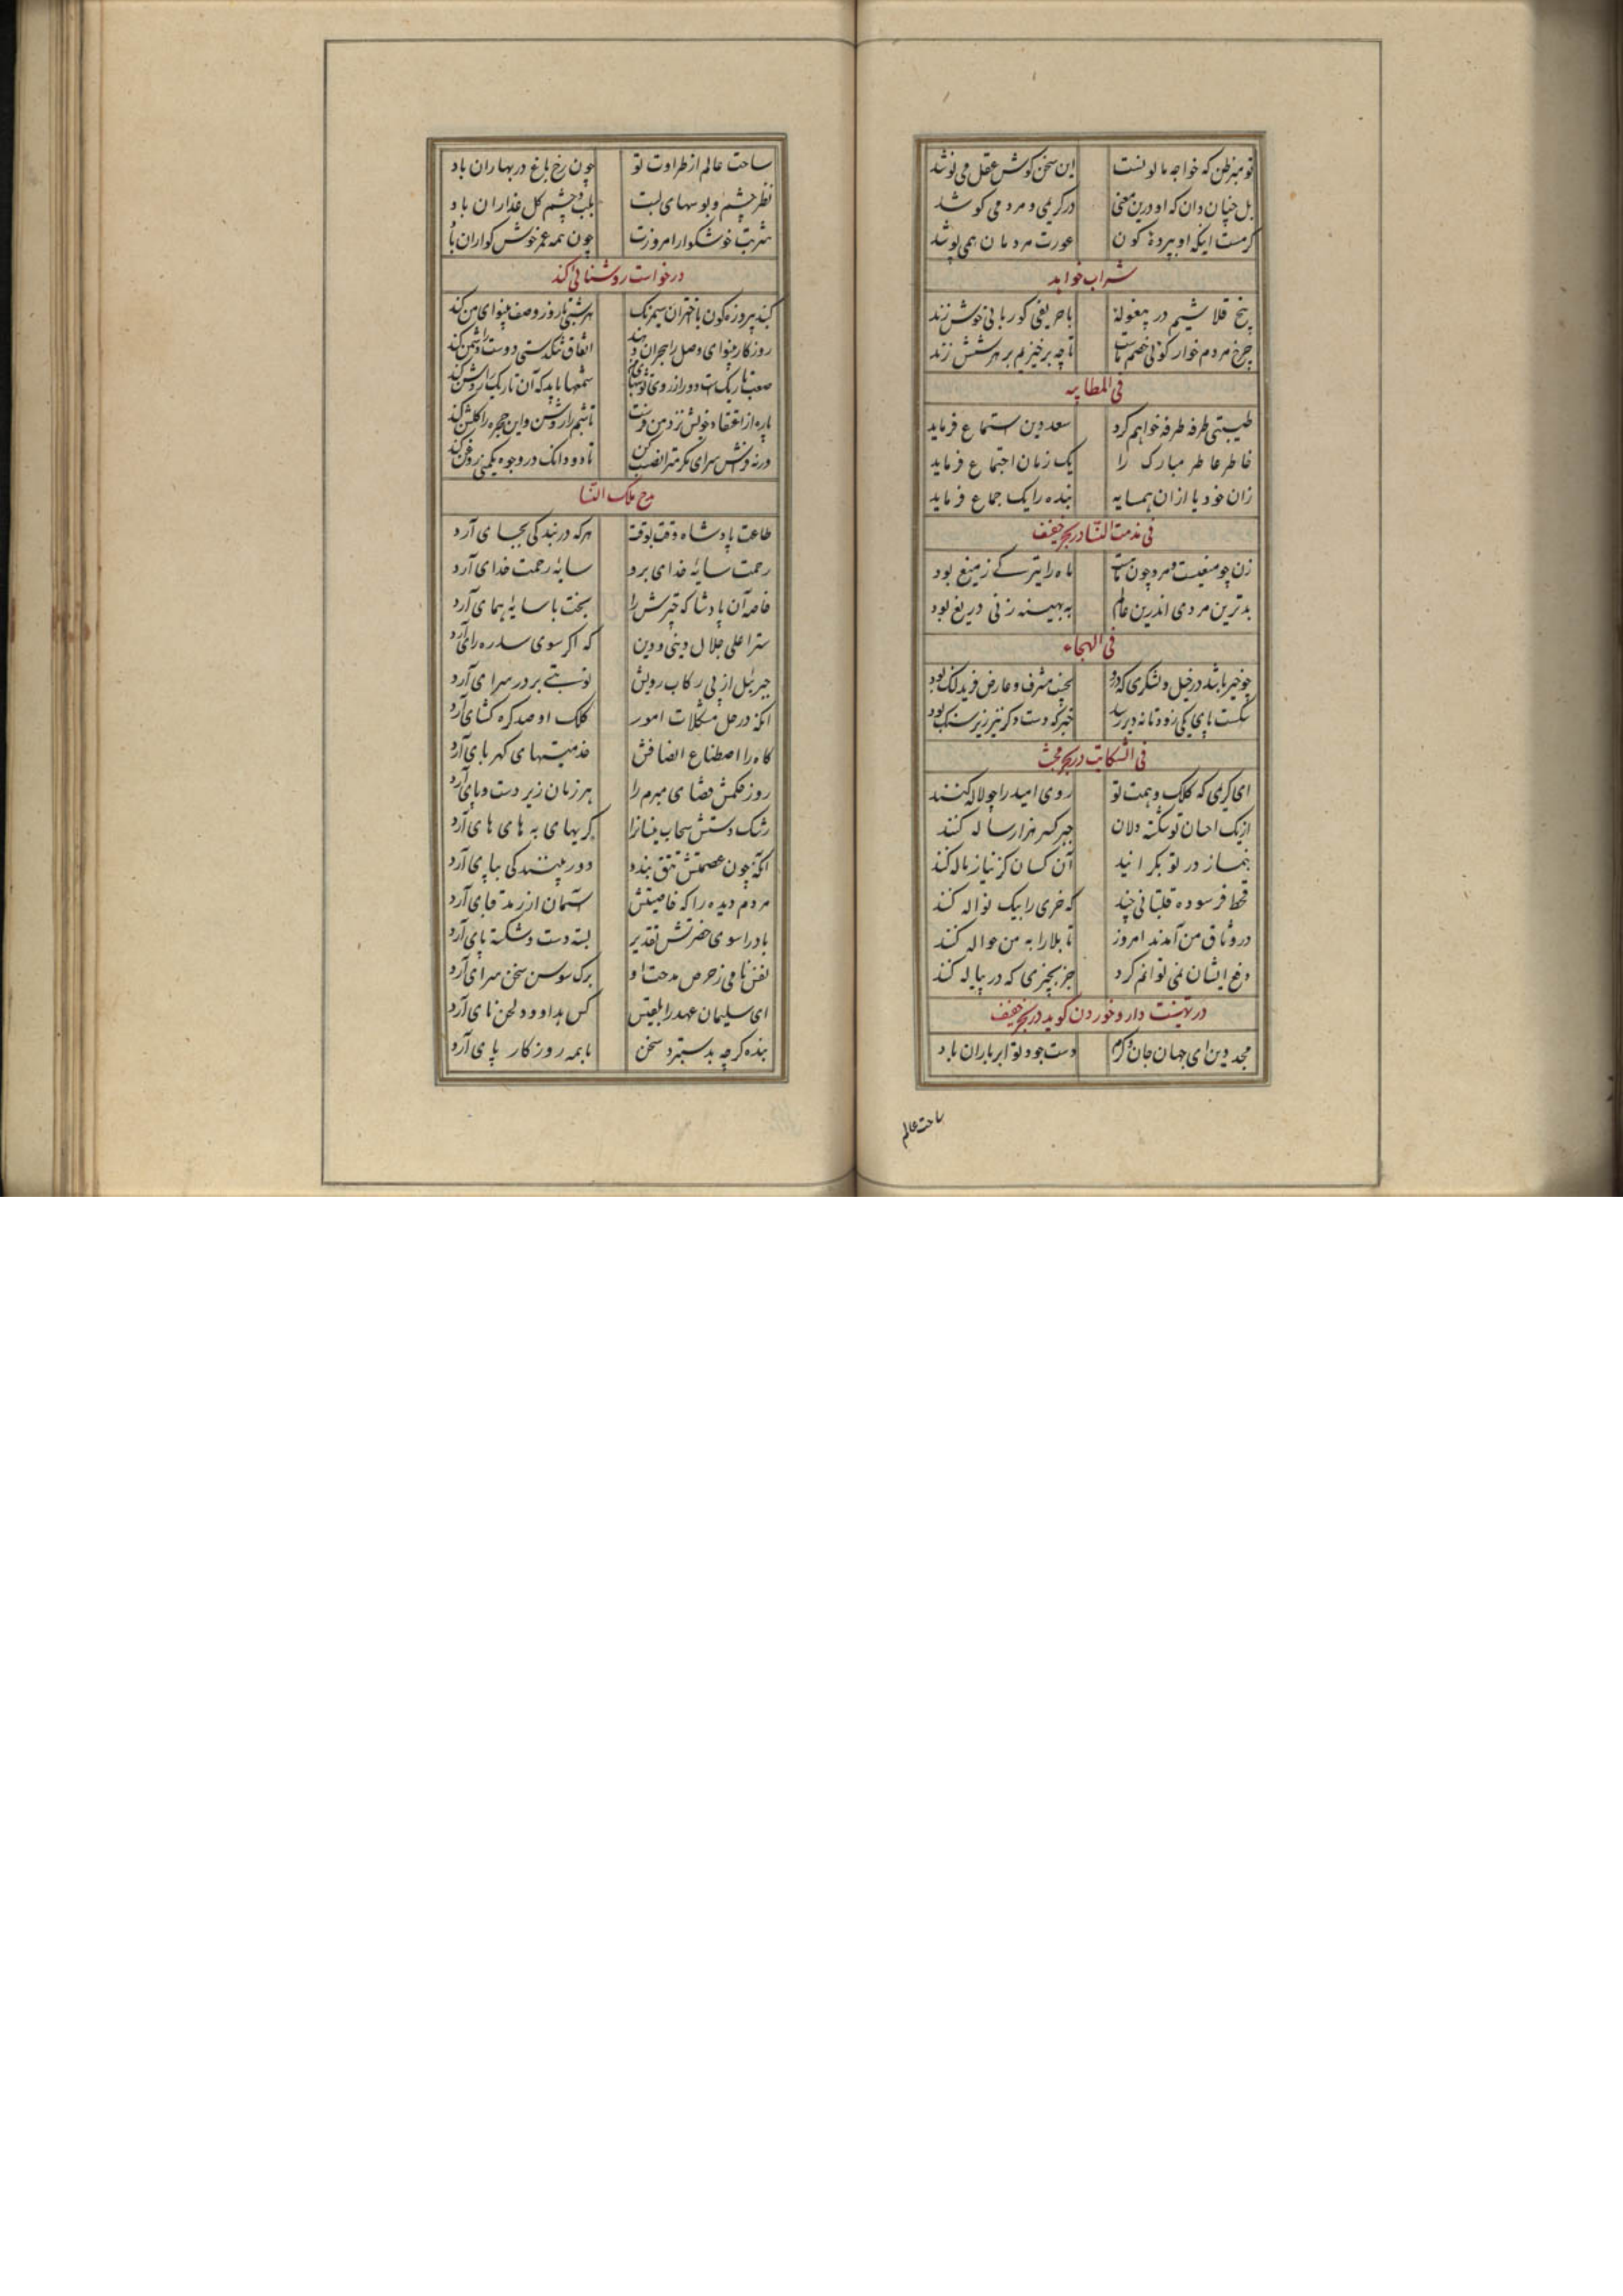 تو مبر ظن که خواجه مالو نست این سخن گوش عقل می نوشد
بل چنان دان که او درین معنی در کریمی و مردمی کوشد
کرمست اینکه او بپرده کون عورت مردمان همی پوشد
شراب خواهد
پنج قلاشیم در بیغوله با حریفی کو ربابی خوش زند
چرخ مردم خوار گوئی خصم ماست تا چه برخیزیم بر هر شش زند
فی المطایبه
طیبتی طرفه طرفه خواهم کرد سعد دین استماع فرماید
خاطر عاطر مبارک را یک زمان اجتماع فرماید
زان خود یا ازان همسایه بنده را یک جماع فرماید
فی مذمت النسا در بحر خفیف
زن چو میغست و مرد چون ماهست ماه را تیرگی ز میغ بود
بدترین مردی اندرین عالم به بهینه زنی دریغ بود
فی الهجاء
چو خیر باشد در خیل و لشکری که درو بجنب مشرف و عارض فرید لنگ بود
شکست پای یکی زود تا نه دیر رسد خبر که دست دگر نیز زیر سنگ بود
فی الشکایت در بحر مجتث
ای کریمی که کلک و همت تو روی امید را چو لاله کنند
از یک احسان تو شکسته دلان جبر کسر هزار ساله کنند
بنماز در تو بگرانید آن کسان کز نیاز ناله کند
قحط فرسوده قلتبانی چند که خری را بیک نواله کنند
در وثاق من آمدند امروز تا بلا را به من حواله کنند
دفع ایشان نمی توانم کرد جز بچیزی که در پیاله کنند
در تهنیت دارو خوردن گوید در بحر خفیف
مجد دین ای جهان جان و کرم دست جود تو ابر باران باد
ساحت عالم
ساحت عالم از طراوت تو چون رخ باغ در بهاران باد
نظر چشم و بوسهای لبت بلب و چشم گل عذاران باد
شربت خوشگوار امروزت چون همه عمر خوش گواران باد
درخواست روشنائی کند
گنبد پیروزه گون با اختران سیم رنگ هر شبی تا روز وصف بینوای من کند
روزگار بینوای وصل را هجران دهد اتفاق تنگدستی دوست را دشمن کند
شمعها باید که آن تاریک را روشن کند
پاره از اعتقاد خویش نزد من فرست تا شبم را روشن و این حجره را گلشن کند
ورنه فراش سرای مکرمت را نصب کن تا دو دانگ در وجوه یکمنی روغن کند
مدح ملک النسا
طاعت پادشاه وقت بوقت هر که در بندگی بجای آرد
رحمت سایۀ خدای برو سایۀ رحمت خدای آرد
خاصه آن پادشا که چترش را بخت با سایۀ همای آرد
ستر اعلی جلال دینی و دین که اگر سوی سدره رای آرد
جبرئیل از پی رکاب رویش نوبتی بر در سرای آرد
آنکه در حل مشکلات امور کلک او صد گره گشای آرد
کاه را اصطناع انصافش خدمتیهای کهربای آرد
روز حکمش قضای مبرم را هر زمان زیر دست و پای آرد
رشک دستش سحاب نیسان را گریهای به های های آرد
آنکه چون عصمتش تتق بندد دور بینندگی بپای آرد
مردم دیده را که خاصیتش آسمان از زمد قبای آرد
باد را سوی حضرتش تقدیر بسته دست و شکسته پای آرد
نفس نامی ز حرص مدحت او برگ سوسن سخن سرای آرد
ای سلیمان عهد را بلقیس کس بداوود لحن نای آرد
بنده گرچه بدستبرد سخن با همه روزگار پای آرد